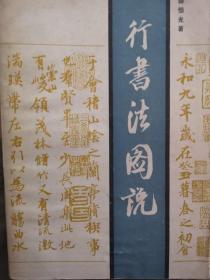 行書法圖說
永和九年歲在癸丑暮春之初會
于會稽山陰之蘭亭脩稧事
也羣賢畢至少長咸集此地
有崇山峻領茂林脩竹又有清流激
湍暎帶左右引以為流觴曲水